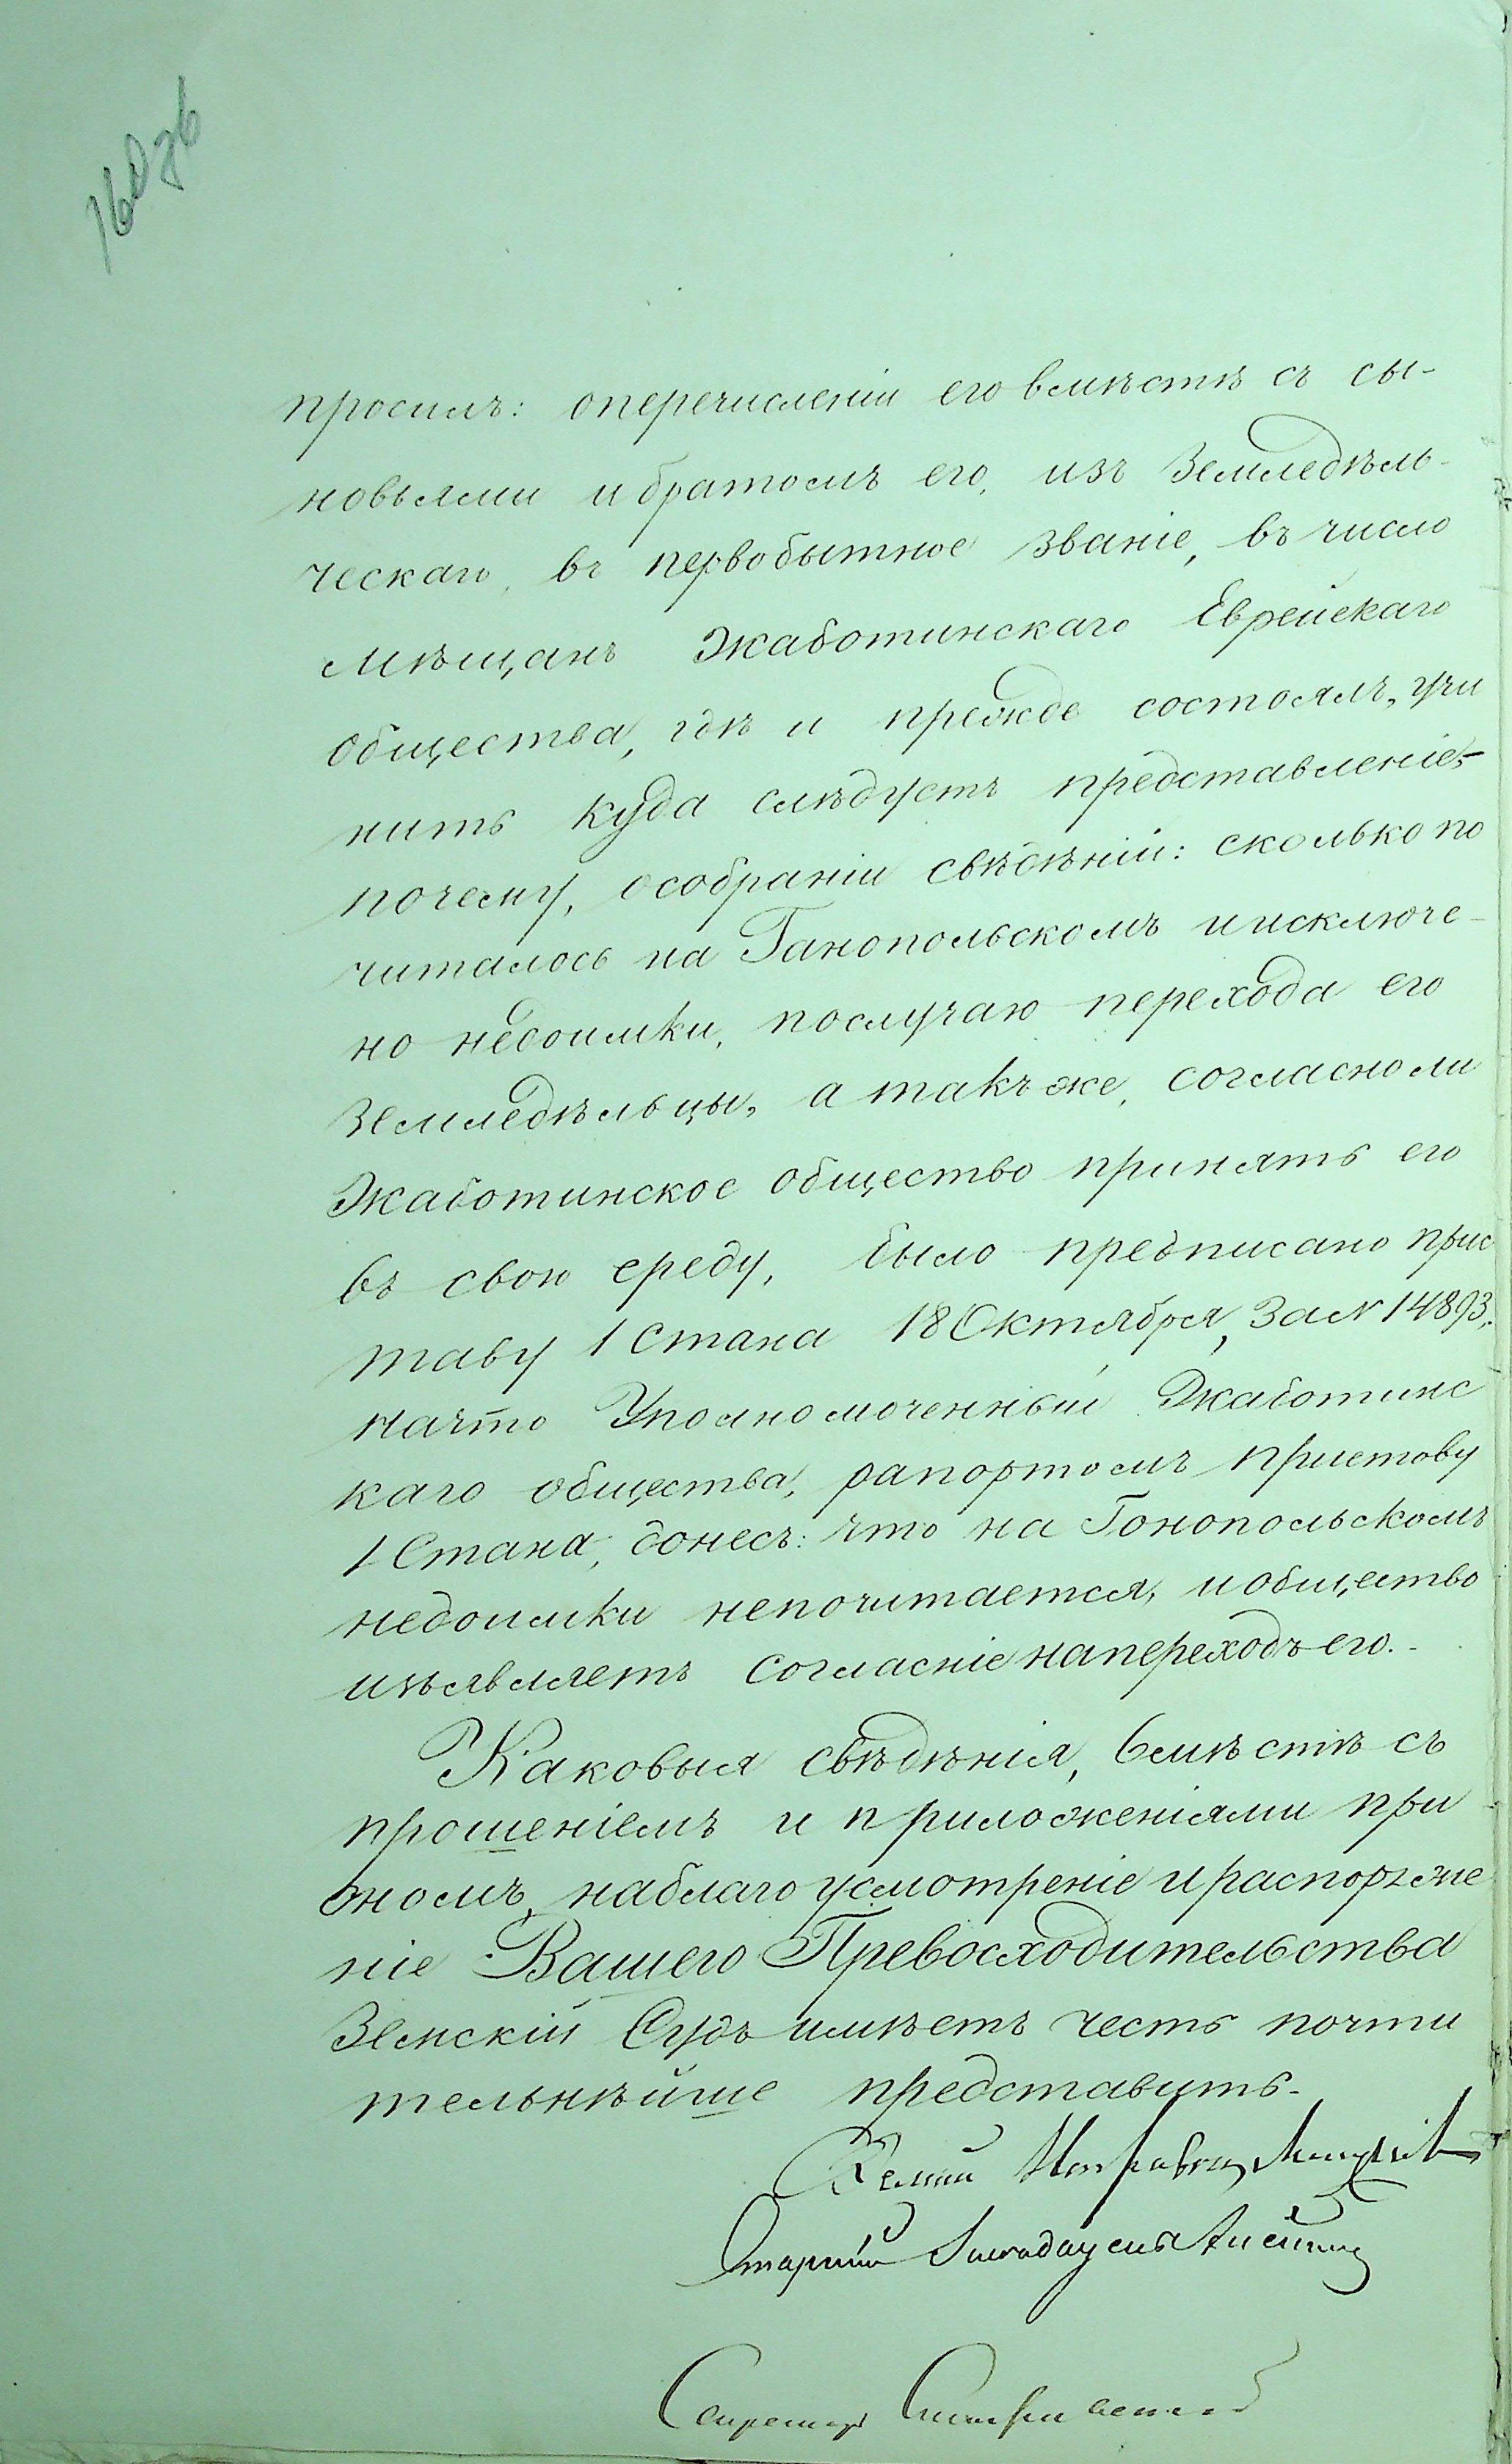 просилъ: оперечисленіи его вмѣстѣ съ сы-
новьями ибратомъ его, изъ Земледѣль-
ческаго, въ первобытное званіе, въ число
мѣщанъ Жаботинскаго Еврейскаго
общества, гдѣ и прежде состоялъ, учи
нить куда слѣдуетъ представленіе,-
почему, особраніи свѣдѣній: сколько по
читалось на Ганопольскомъ иисключе-
но недоимки, послучаю перехода его
Земледѣльцы, а такъже, согласно ли
Жаботинское общество принять его
въ свою среду, было предписано прис
таву 1 Стана 18 Октября, За N 14893,
начто Уполномоченный Жаботинс
каго общества, рапортомъ приставу
1 Стана, донесъ: что на Гонопольскомъ
недоимки непочитается, иобщество
изъявляетъ согласіе напереходъ его.-
Каковыя свѣдѣнія, вмѣстѣ съ
прошеніемъ и приложеніями при
ономъ, наблагоусмотреніе ираспоряже
ніе Вашего Превосходительства
Земскій Судъ имѣетъ честь почти
тельнѣйше представить.-
Земскій Исправникъ
Старшій
Секретарь